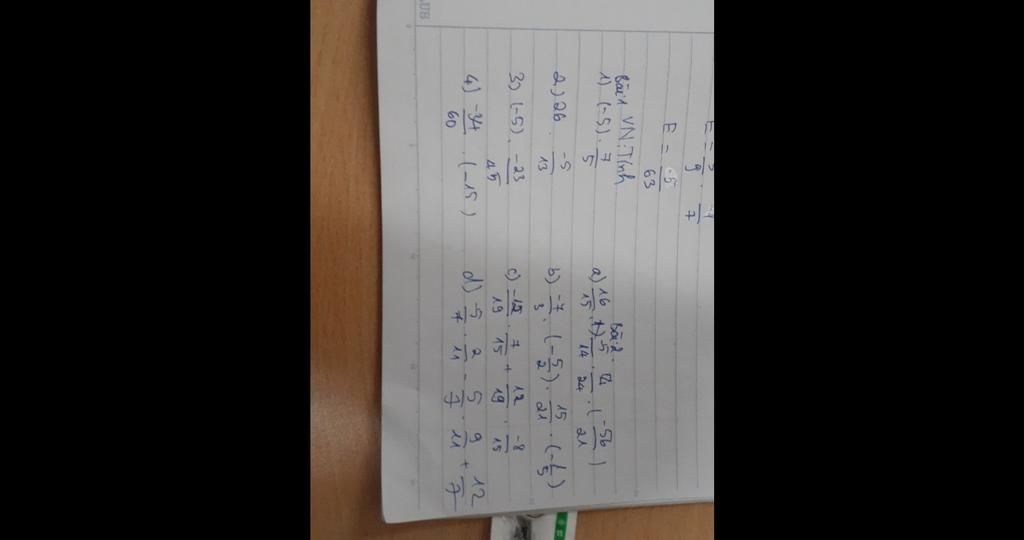 E = 5/9 . /7
E = -5/63
Bài 1 VN: Tính
1) (-5) . 7/5
2) 26 . -5/13
3) (-5) . -23/45
4) -34/60 . (-15)
Bài 2
a) 16/15 . (-5)/14 . /24 . (-56/21)
b) -7/3 . (-5/2) . 15/21 . (-/5)
c) -12/19 . 7/15 + 12/19 . -8/15
d) -5/7 . 2/11 - 5/7 . 9/11 + 12/7